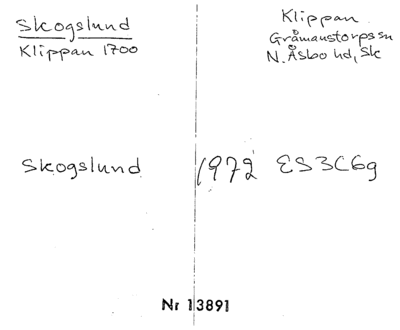 Skogslund
Klippan 1700
Klippan
Gråmanstorps sn
N. Åsbo hd, Sk
Skogslund 1972 ES3C6g
Nr 13891